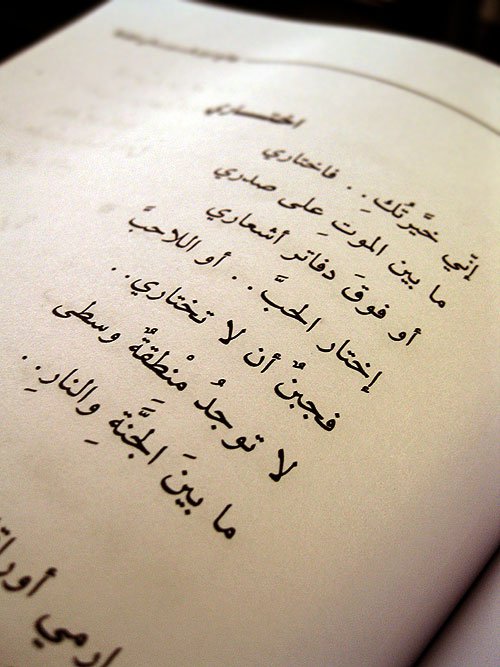 اختاري
إنّي خيَّرتُكِ.. فاختاري
ما بين الموتِ على صدري
أو فوقَ دفاتر أشعاري
إختار الحبَّ.. أو اللاحبَّ
فجبنٌ أن لا تختاري..
لا توجدُ مِنْطِقةٌ وسطى
ما بينَ الجَنَّةِ والنارِ..
إرمي